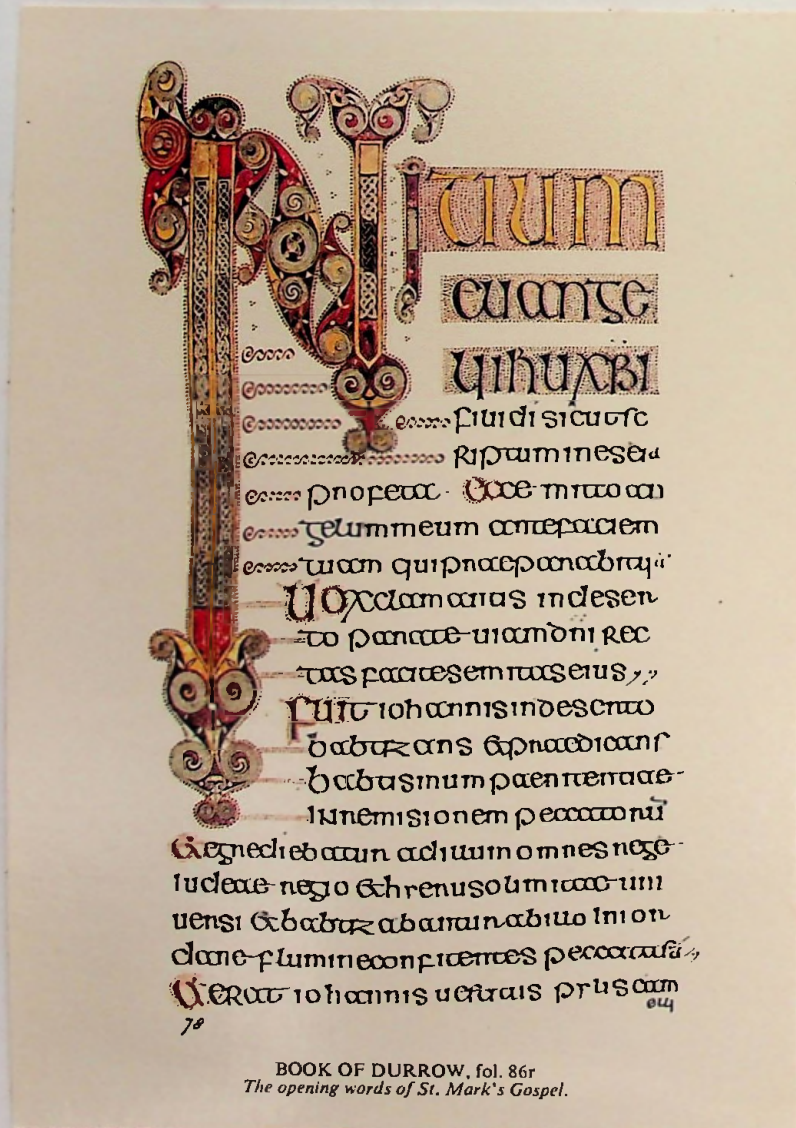 INITIUM
euange
lii ihu xpi
filii di sicut sc
riptum in eseia
profeta · Ecce mitto an
gelum meum ante faciem
tuam qui praeparabit
Uox clamantis in deser
to parate uiam dni rec
tas facite semitas eius
fuit iohannis in deserto
babtizans & praedicans
babtismum paenitentiae
in remisionem peccatorū
& egrediebatur ad illum omnes
iudeae regio & uni
uersi & babtizabantur ab illo in ior
dane flumine confitentes peccata sua
& erat iohannis uestitus cam
78
BOOK OF DURROW, fol. 86r
The opening words of St. Mark's Gospel.